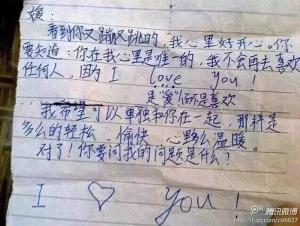 媛:
看到你又蹦又跳的,我心里好开心。你
要知道:你在我心里是唯一的,我不会再去喜欢
任何人,因为I love you!
是"爱"而不是喜欢
我希望可以单独和你在一起,那样是
多么的轻松、愉快、心里多么温暖。
对了!你要问我的问题是什么?
I ♡ you!
腾讯微博
http://t.qq.com/cs6627